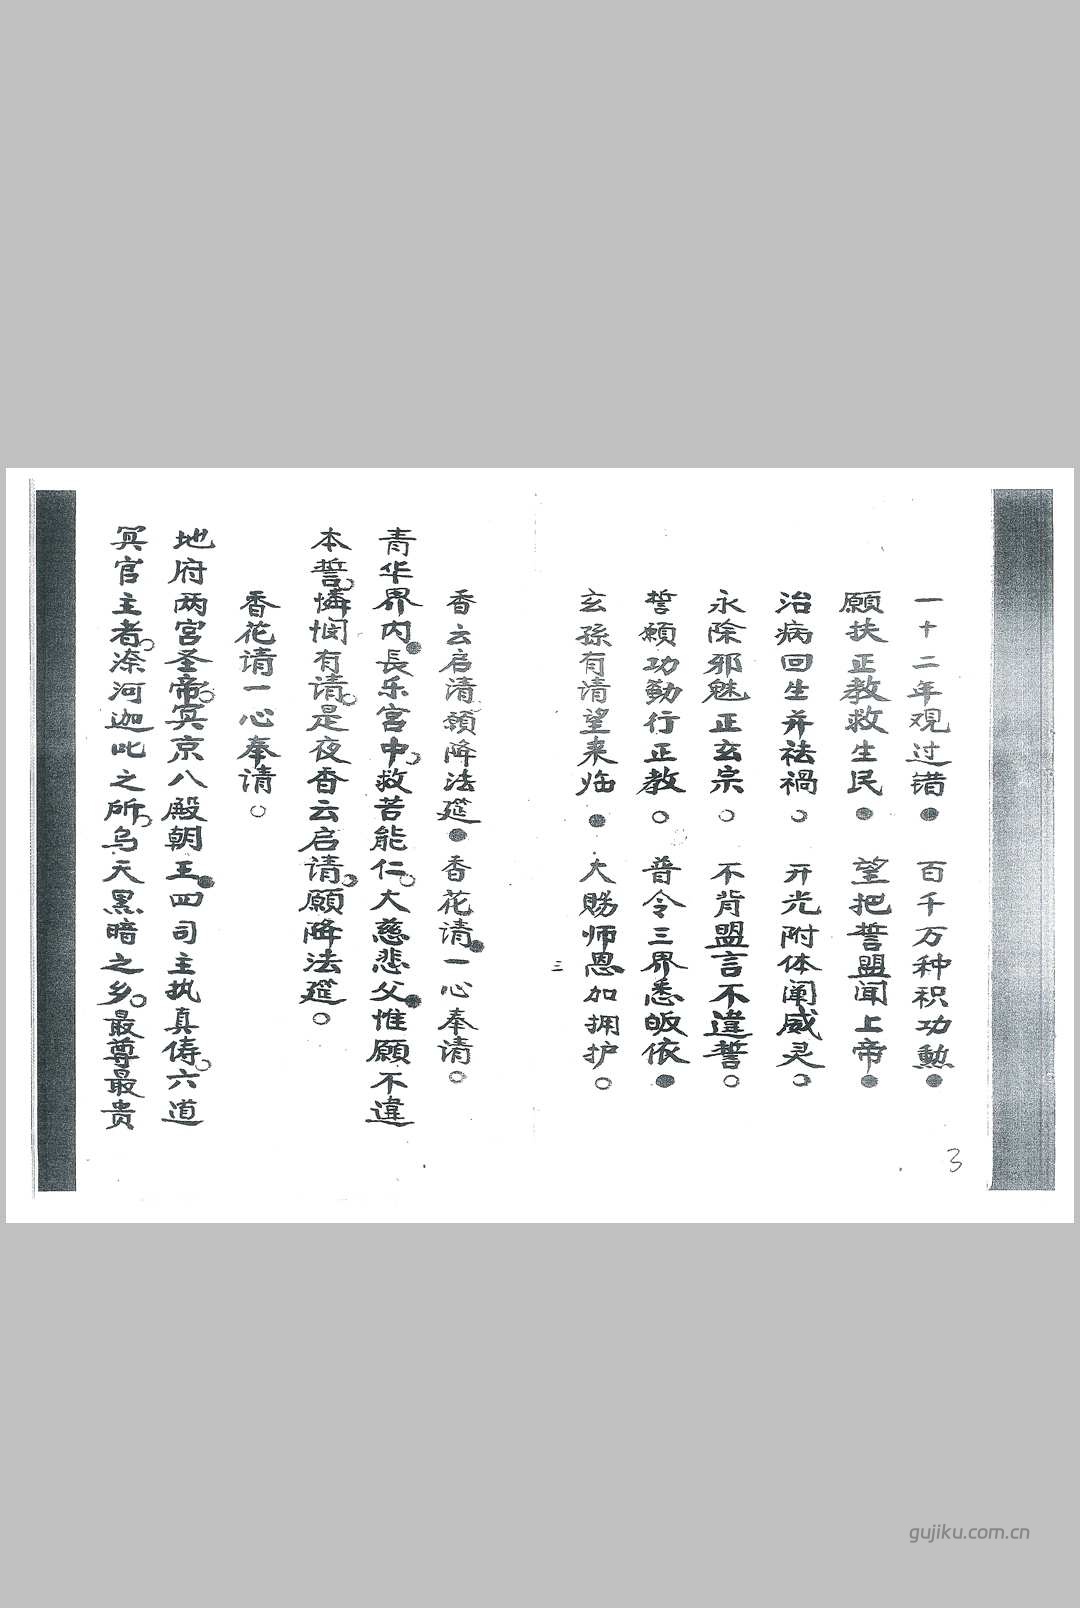 一十二年观过错●百千万种积功勲●
願扶正教救生民●望把誓盟闻上帝●
治病回生并祛禍○开光附体阐威灵○
永除邪魅正玄宗○不背盟言不違誓○
誓願功勤行正教○普令三界悉皈依●
玄孫有请望来临●大赐师恩加拥护○
三
3
香云启请願降法筵●香花请●一心奉请○
青华界内●長乐宫中○救苦能仁○大慈悲父●惟願不違
本誓○憐悯有请○是夜香云启请○願降法筵○
香花请一心奉请○
地府两宫圣帝○冥京八殿朝王●四司主执真俦○六道
冥官主者○溙河迦叱之所○乌天黑暗之乡○最尊最贵
gujiku.com.cn